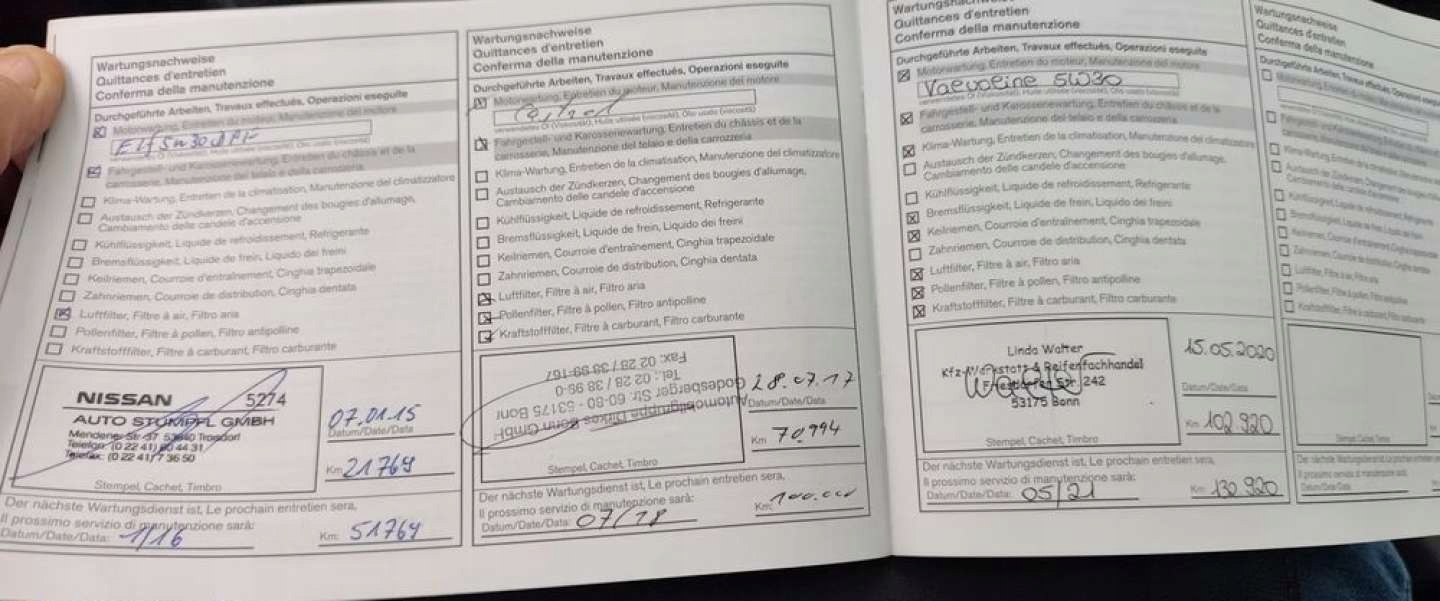 Wartungsnachweise
Quittances d'entretien
Conferma della manutenzione
Durchgeführte Arbeiten, Travaux effectués, Operazioni eseguite
Motorwartung, Entretien du moteur, Manutenzione del motore
Elf 5w30 DPF
verwendetes Öl (Viskosität), Huile utilisée (viscosité), Olio usato (viscosità)
Fahrgestell- und Karossenewartung, Entretien du châssis et de la
carrosserie, Manutenzione del telaio e della carrozzeria
Klima-Wartung, Entretien de la climatisation, Manutenzione del climatizzatore
Austausch der Zündkerzen, Changement des bougies d'allumage,
Cambiamento delle candele d'accensione
Kühlflüssigkeit, Liquide de refroidissement, Refrigerante
Bremsflüssigkeit, Liquide de frein, Liquido dei freini
Keilriemen, Courroie d'entraînement, Cinghia trapezoidale
Zahnriemen, Courroie de distribution, Cinghia dentata
Luftfilter, Filtre à air, Filtro aria
Pollenfilter, Filtre à pollen, Filtro antipolline
Kraftstofffilter, Filtre à carburant, Filtro carburante
NISSAN 5274
AUTO STÜMPFL GMBH
Mendener Str. 37 53840 Troisdorf
Telefon: (0 22 41) 80 44 31
Telefax: (0 22 41) 7 36 50
Stempel, Cachet, Timbro
07.01.15
Datum/Date/Data
Km: 21769
Der nächste Wartungsdienst ist, Le prochain entretien sera,
Il prossimo servizio di manutenzione sarà:
Datum/Date/Data: 1/16 Km: 51769
Wartungsnachweise
Quittances d'entretien
Conferma della manutenzione
Durchgeführte Arbeiten, Travaux effectués, Operazioni eseguite
Motorwartung, Entretien du moteur, Manutenzione del motore
Castrol
verwendetes Öl (Viskosität), Huile utilisée (viscosité), Olio usato (viscosità)
Fahrgestell- und Karossenewartung, Entretien du châssis et de la
carrosserie, Manutenzione del telaio e della carrozzeria
Klima-Wartung, Entretien de la climatisation, Manutenzione del climatizzatore
Austausch der Zündkerzen, Changement des bougies d'allumage,
Cambiamento delle candele d'accensione
Kühlflüssigkeit, Liquide de refroidissement, Refrigerante
Bremsflüssigkeit, Liquide de frein, Liquido dei freini
Keilriemen, Courroie d'entraînement, Cinghia trapezoidale
Zahnriemen, Courroie de distribution, Cinghia dentata
Luftfilter, Filtre à air, Filtro aria
Pollenfilter, Filtre à pollen, Filtro antipolline
Kraftstofffilter, Filtre à carburant, Filtro carburante
Automobilgruppe Dirkes Bonn GmbH
Godesberger Str. 60-80 · 53175 Bonn
Tel.: 02 28 / 38 99-0
Fax: 02 28 / 38 99-167
Stempel, Cachet, Timbro
28.07.17
Datum/Date/Data
Km 70.994
Der nächste Wartungsdienst ist, Le prochain entretien sera,
Il prossimo servizio di manutenzione sarà:
Datum/Date/Data: 07/18 Km: 100.000
Wartungsnachweise
Quittances d'entretien
Conferma della manutenzione
Durchgeführte Arbeiten, Travaux effectués, Operazioni eseguite
Motorwartung, Entretien du moteur, Manutenzione del motore
Vaevoline 5W30
verwendetes Öl (Viskosität), Huile utilisée (viscosité), Olio usato (viscosità)
Fahrgestell- und Karossenewartung, Entretien du châssis et de la
carrosserie, Manutenzione del telaio e della carrozzeria
Klima-Wartung, Entretien de la climatisation, Manutenzione del climatizzatore
Austausch der Zündkerzen, Changement des bougies d'allumage,
Cambiamento delle candele d'accensione
Kühlflüssigkeit, Liquide de refroidissement, Refrigerante
Bremsflüssigkeit, Liquide de frein, Liquido dei freini
Keilriemen, Courroie d'entraînement, Cinghia trapezoidale
Zahnriemen, Courroie de distribution, Cinghia dentata
Luftfilter, Filtre à air, Filtro aria
Pollenfilter, Filtre à pollen, Filtro antipolline
Kraftstofffilter, Filtre à carburant, Filtro carburante
Linda Walter
Kfz-Werkstatt & Reifenfachhandel
Str. 242
53175 Bonn
Stempel, Cachet, Timbro
15.05.2020
Datum/Date/Data
Km 102 920
Der nächste Wartungsdienst ist, Le prochain entretien sera,
Il prossimo servizio di manutenzione sarà:
Datum/Date/Data: 05/21 Km: 130 920
Wartungsnachweise
Quittances d'entretien
Conferma della manutenzione
Durchgeführte Arbeiten, Travaux
Stempel, Cachet, Timbro
Datum/Date/Data